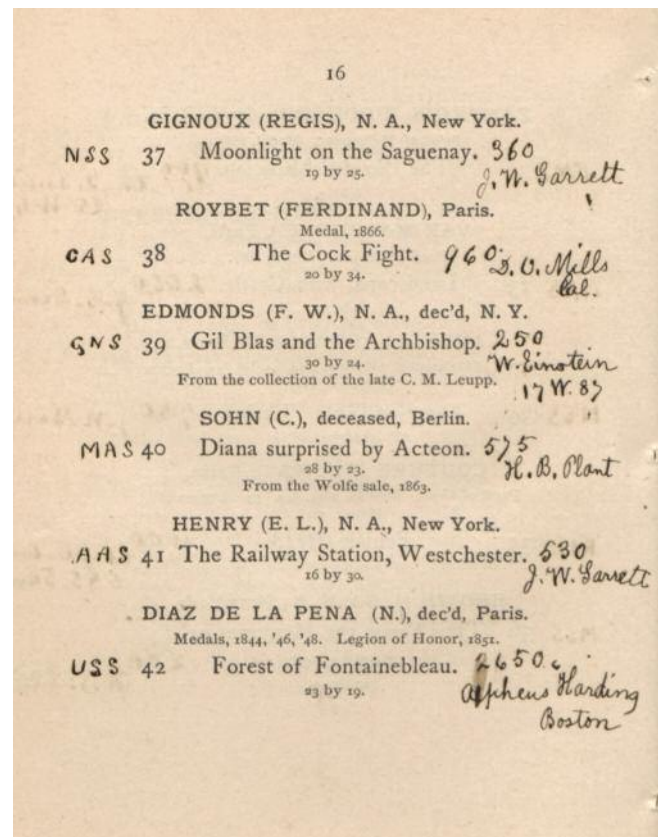 16
GIGNOUX (REGIS), N. A., New York.
NSS 37 Moonlight on the Saguenay. 360
19 by 25.
J. W. Garrett
ROYBET (FERDINAND), Paris.
Medal, 1866.
CAS 38 The Cock Fight. 960
20 by 34.
D. O. Mills
Cal.
EDMONDS (F. W.), N. A., dec'd, N. Y.
GNS 39 Gil Blas and the Archbishop. 250
30 by 24.
W. Einstein
From the collection of the late C. M. Leupp.
17 W. 87
SOHN (C.), deceased, Berlin.
MAS 40 Diana surprised by Acteon. 575
28 by 23.
H. B. Plant
From the Wolfe sale, 1863.
HENRY (E. L.), N. A., New York.
AAS 41 The Railway Station, Westchester. 530
16 by 30.
J. W. Garrett
DIAZ DE LA PENA (N.), dec'd, Paris.
Medals, 1844, '46, '48. Legion of Honor, 1851.
USS 42 Forest of Fontainebleau. 2650
23 by 19.
Alpheus Harding
Boston